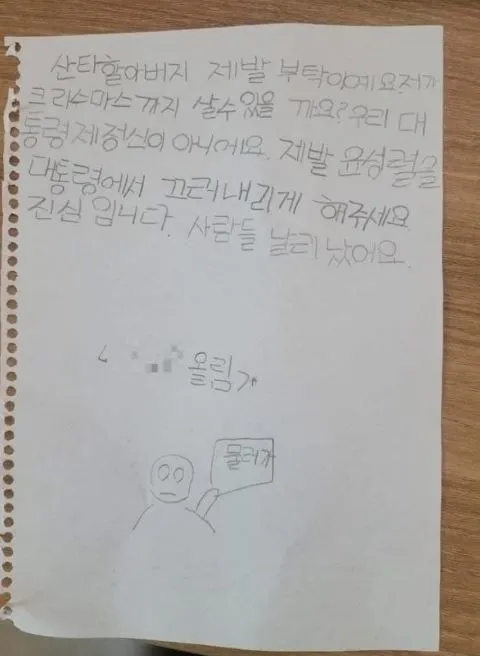 산타할아버지 제발 부탁이에요. 저가
크리스마스까지 살수있을 까요? 우리 대
통령 제정신이 아니에요. 제발 윤성렬을
대통령에서 끄러내리게 해주세요.
진심 입니다. 사람들 날리 났어요.
올림
물러가